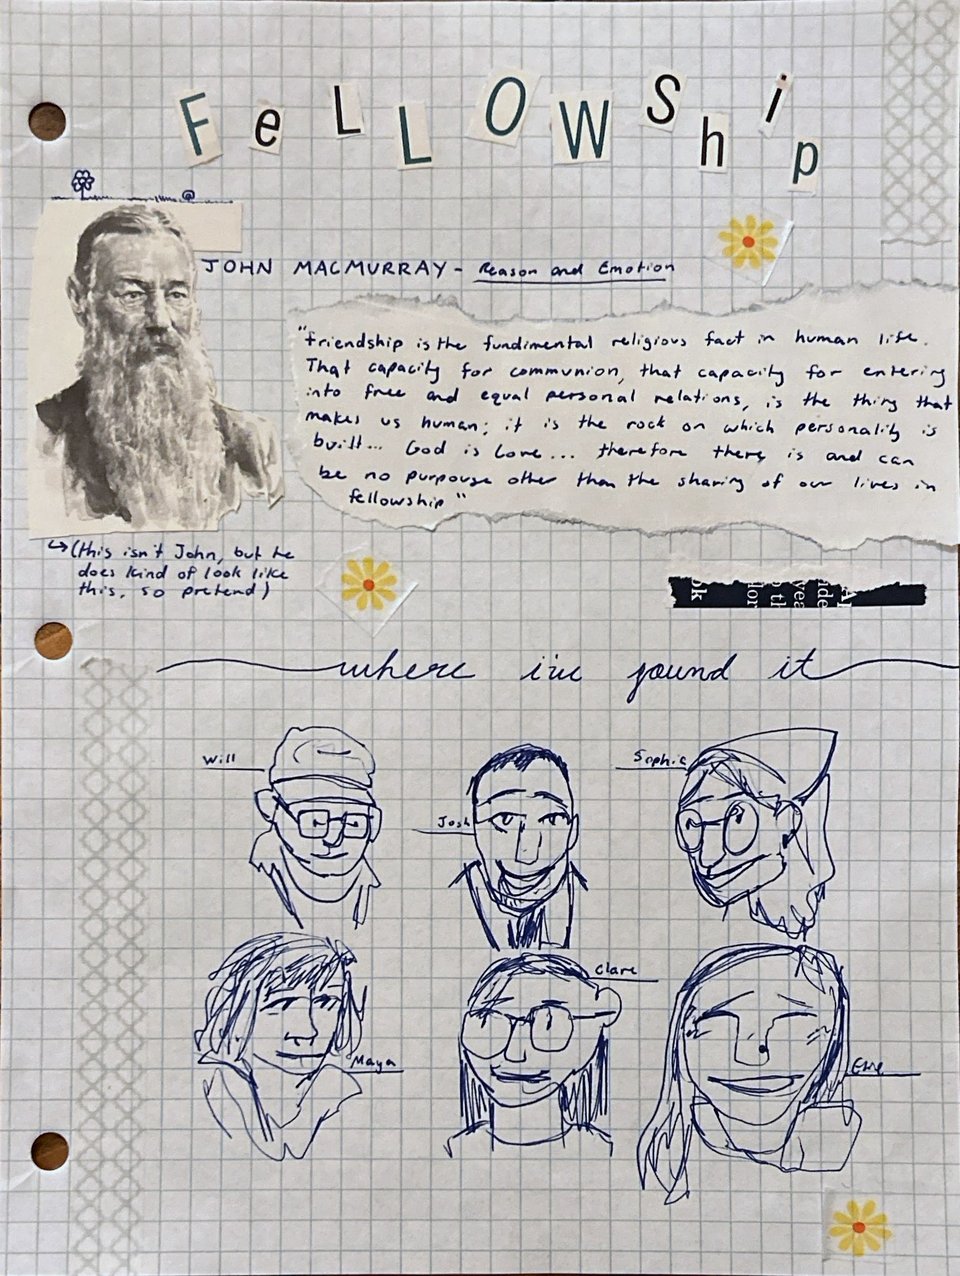 FeLLOWShip
JOHN MACMURRAY - Reason and Emotion
"Friendship is the fundimental religious fact in human life.
That capacity for communion, that capacity for entering
into free and equal personal relations, is the thing that
makes us human; it is the rock on which personality is
built... God is Love... therefore there is and can
be no purpouse other than the sharing of our lives in
fellowship"
↳(this isn't John, but he
does kind of look like
this, so pretend)
where i've found it
Will
Josh
Sophie
Maya
Clare